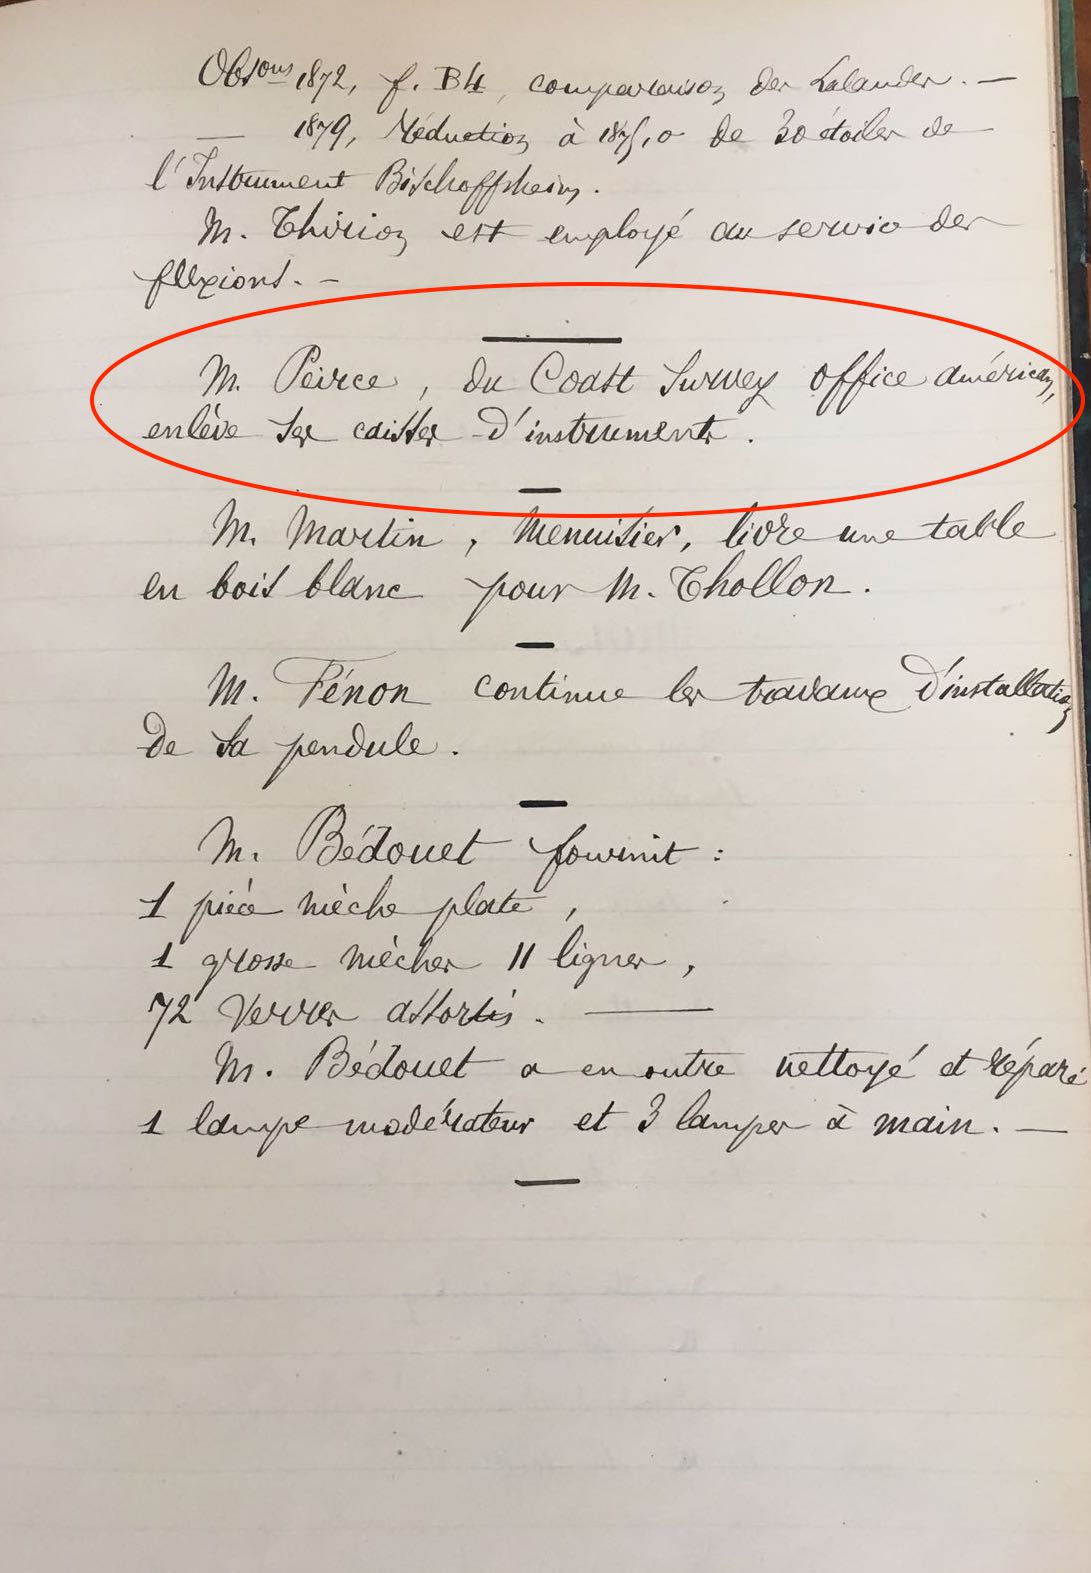 Obsons 1872, f. B4, comparaison des Lalandes. —
— 1879, Réduction à 1875,0 de 30 étoiles de
l'Instrument Bischoffsheim.
M. Thirion est employé au service des
flexions. —
M. Peirce, du Coast Survey office américain,
enlève ses caisses d'instruments.
M. Martin, Menuisier, livre une table
en bois blanc pour M. Thollon.
M. Fénon continue les travaux d'installation
de sa pendule.
M. Bédouet fournit :
1 pièce mèche plate,
1 grosse mèches 11 lignes,
72 Verres assortis. —
M. Bédouet a en outre nettoyé et réparé
1 lampe modérateur et 3 lampes à main. —